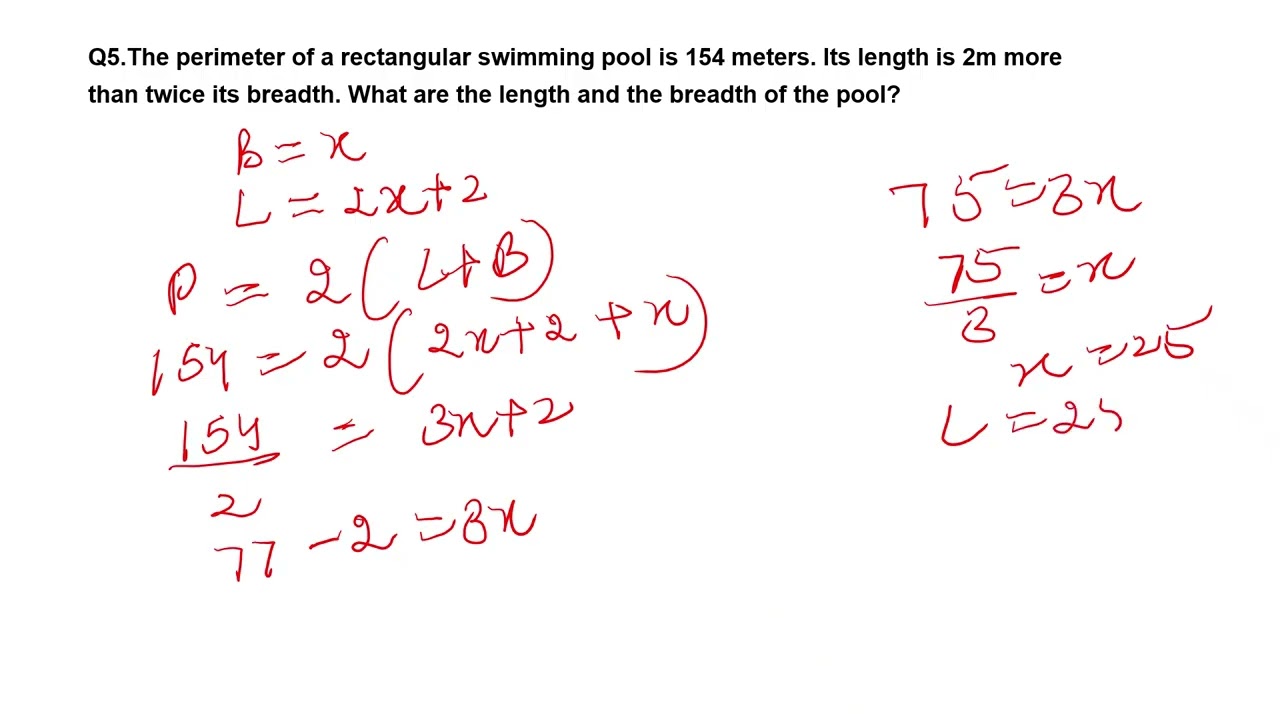 Q5.The perimeter of a rectangular swimming pool is 154 meters. Its length is 2m more
than twice its breadth. What are the length and the breadth of the pool?
B = x
L = 2x+2
P = 2(L+B)
154 = 2(2x+2+x)
154/2 = 3x+2
77-2 = 3x
75 = 3x
75/3 = x
x = 25
L = 2